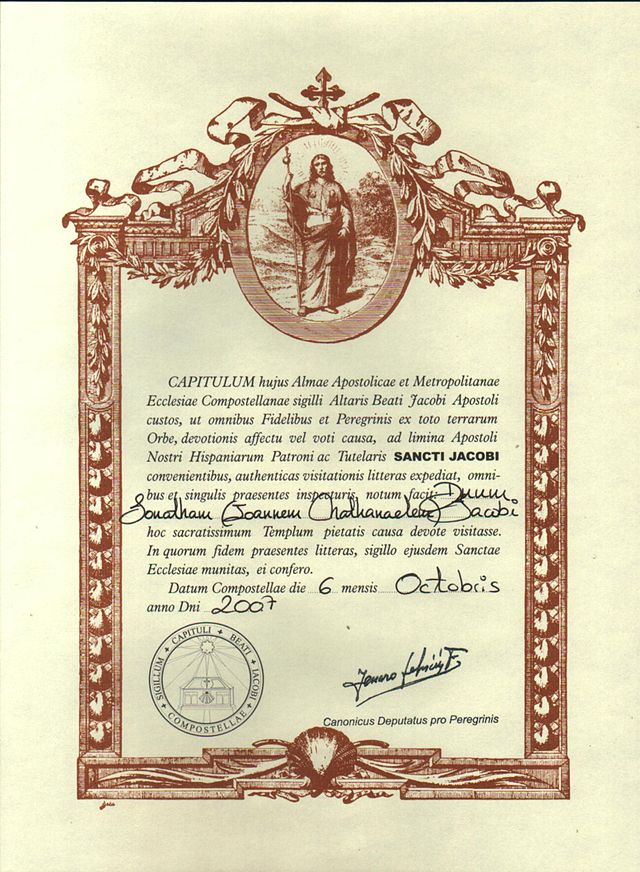 CAPITULUM hujus Almae Apostolicae et Metropolitanae
Ecclesiae Compostellanae sigilli Altaris Beati Jacobi Apostoli
custos, ut omnibus Fidelibus et Peregrinis ex toto terrarum
Orbe, devotionis affectu vel voti causa, ad limina Apostoli
Nostri Hispaniarum Patroni ac Tutelaris SANCTI JACOBI
convenientibus, authenticas visitationis litteras expediat, omni-
bus et singulis praesentes inspecturis, notum facit: Dnum
Jonatham (Joannem Chathanaelem) Jacobi
hoc sacratissimum Templum pietatis causa devote visitasse.
In quorum fidem praesentes litteras, sigillo ejusdem Sanctae
Ecclesiae munitas, ei confero.
Datum Compostellae die 6 mensis Octobris
anno Dni 2007
SIGILLUM + CAPITULI + BEATI + JACOBI + COMPOSTELLAE +
Canonicus Deputatus pro Peregrinis